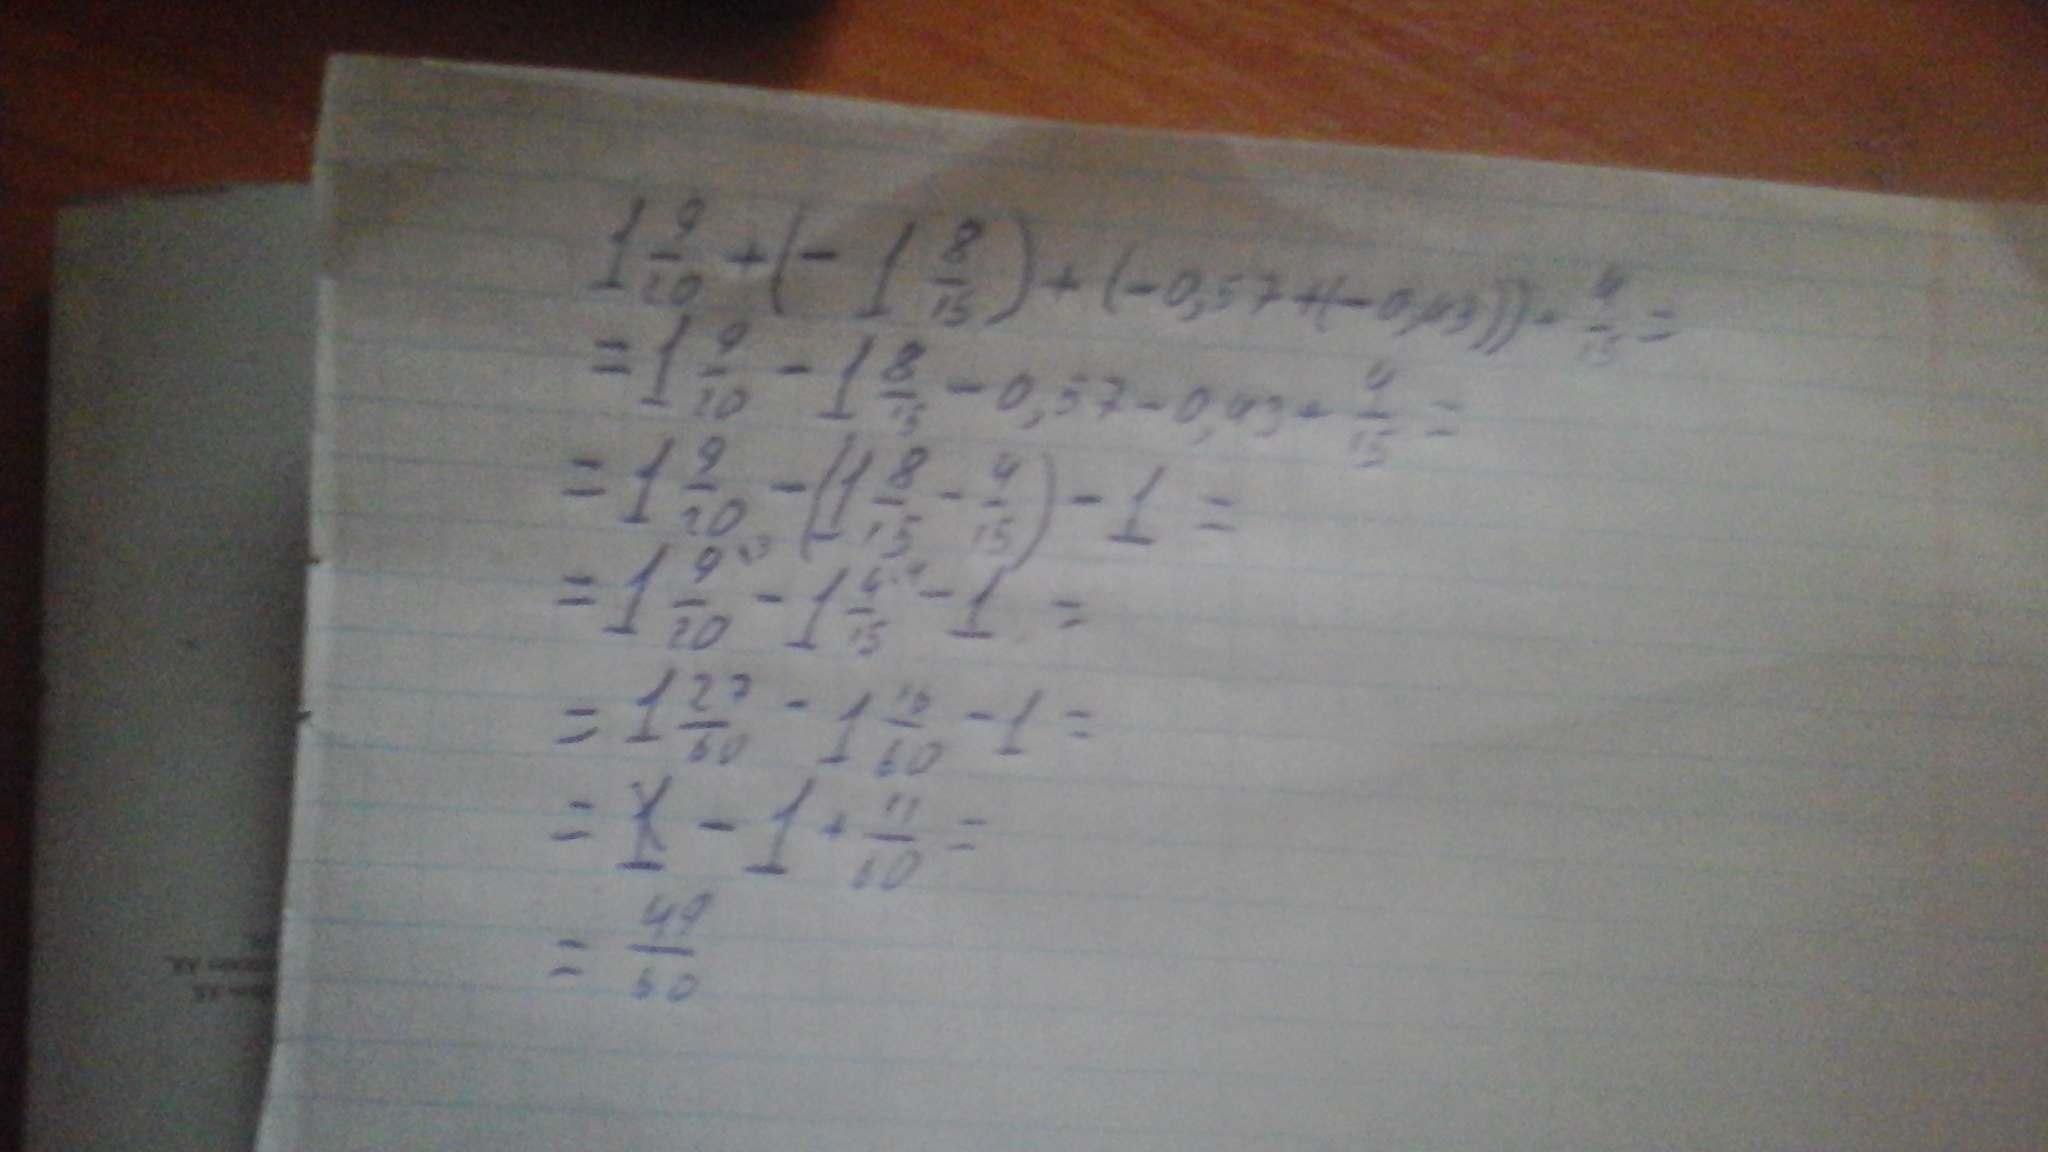 1 9/20 + (- 1 8/15) + (-0,57 + (-0,43)) + 4/15 =
= 1 9/20 - 1 8/15 - 0,57 - 0,43 + 4/15 =
= 1 9/20 - (1 8/15 - 4/15) - 1 =
= 1 9/20 ·3 - 1 4/15 ·4 - 1 =
= 1 27/60 - 1 16/60 - 1 =
= 1 - 1 + 11/60 =
= 49/60